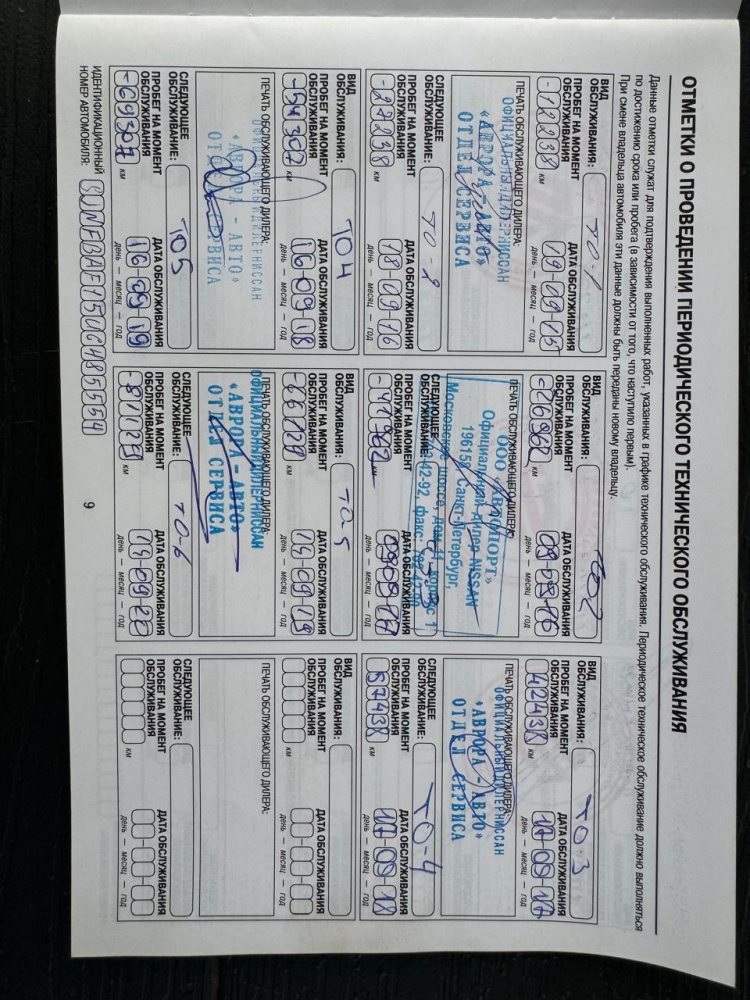 ОТМЕТКИ О ПРОВЕДЕНИИ ПЕРИОДИЧЕСКОГО ТЕХНИЧЕСКОГО ОБСЛУЖИВАНИЯ
Данные отметки служат для подтверждения выполненных работ, указанных в графике технического обслуживания. Периодическое техническое обслуживание должно выполняться
по достижению срока или пробега (в зависимости от того, что наступило первым).
При смене владельца автомобиля эти данные должны быть переданы новому владельцу.
ВИД
ОБСЛУЖИВАНИЯ: ТО-1
ПРОБЕГ НА МОМЕНТ
ОБСЛУЖИВАНИЯ
-12238 км
ДАТА ОБСЛУЖИВАНИЯ
19-09-15
день — месяц — год
ПЕЧАТЬ ОБСЛУЖИВАЮЩЕГО ДИЛЕРА:
ОФИЦИАЛЬНЫЙ ДИЛЕР НИССАН
«АВРОРА - АВТО»
ОТДЕЛ СЕРВИСА
СЛЕДУЮЩЕЕ
ОБСЛУЖИВАНИЕ: ТО-2
ПРОБЕГ НА МОМЕНТ
ОБСЛУЖИВАНИЯ
-27238 км
ДАТА ОБСЛУЖИВАНИЯ
18-09-16
день — месяц — год
ВИД
ОБСЛУЖИВАНИЯ:
ПРОБЕГ НА МОМЕНТ
ОБСЛУЖИВАНИЯ
-26962 км
ДАТА ОБСЛУЖИВАНИЯ
день — месяц — год
ПЕЧАТЬ ОБСЛУЖИВАЮЩЕГО ДИЛЕРА:
ООО «АВАСПОРТ»
Официальный дилер NISSAN
196158, Санкт-Петербург,
Московское шоссе, дом
СЛЕДУЮЩЕЕ
ОБСЛУЖИВАНИЕ:
ПРОБЕГ НА МОМЕНТ
ОБСЛУЖИВАНИЯ
-41962 км
ДАТА ОБСЛУЖИВАНИЯ
день — месяц — год
ВИД
ОБСЛУЖИВАНИЯ: ТО-3
ПРОБЕГ НА МОМЕНТ
ОБСЛУЖИВАНИЯ
42438 км
ДАТА ОБСЛУЖИВАНИЯ
17-09-17
день — месяц — год
ПЕЧАТЬ ОБСЛУЖИВАЮЩЕГО ДИЛЕРА:
ОФИЦИАЛЬНЫЙ ДИЛЕР НИССАН
«АВРОРА - АВТО»
ОТДЕЛ СЕРВИСА
СЛЕДУЮЩЕЕ
ОБСЛУЖИВАНИЕ: ТО-4
ПРОБЕГ НА МОМЕНТ
ОБСЛУЖИВАНИЯ
57438 км
ДАТА ОБСЛУЖИВАНИЯ
17-09-18
день — месяц — год
ВИД
ОБСЛУЖИВАНИЯ: ТО4
ПРОБЕГ НА МОМЕНТ
ОБСЛУЖИВАНИЯ
-54307 км
ДАТА ОБСЛУЖИВАНИЯ
16-09-18
день — месяц — год
ПЕЧАТЬ ОБСЛУЖИВАЮЩЕГО ДИЛЕРА:
ОФИЦИАЛЬНЫЙ ДИЛЕР НИССАН
«АВРОРА - АВТО»
ОТДЕЛ СЕРВИСА
СЛЕДУЮЩЕЕ
ОБСЛУЖИВАНИЕ: ТО5
ПРОБЕГ НА МОМЕНТ
ОБСЛУЖИВАНИЯ
-69307 км
ДАТА ОБСЛУЖИВАНИЯ
16-09-19
день — месяц — год
ВИД
ОБСЛУЖИВАНИЯ: ТО-5
ПРОБЕГ НА МОМЕНТ
ОБСЛУЖИВАНИЯ
-66129 км
ДАТА ОБСЛУЖИВАНИЯ
14-09-19
день — месяц — год
ПЕЧАТЬ ОБСЛУЖИВАЮЩЕГО ДИЛЕРА:
ОФИЦИАЛЬНЫЙ ДИЛЕР НИССАН
«АВРОРА - АВТО»
ОТДЕЛ СЕРВИСА
СЛЕДУЮЩЕЕ
ОБСЛУЖИВАНИЕ: ТО-6
ПРОБЕГ НА МОМЕНТ
ОБСЛУЖИВАНИЯ
-81129 км
ДАТА ОБСЛУЖИВАНИЯ
день — месяц — год
ВИД
ОБСЛУЖИВАНИЯ:
ПРОБЕГ НА МОМЕНТ
ОБСЛУЖИВАНИЯ
км
ДАТА ОБСЛУЖИВАНИЯ
день — месяц — год
ПЕЧАТЬ ОБСЛУЖИВАЮЩЕГО ДИЛЕРА:
СЛЕДУЮЩЕЕ
ОБСЛУЖИВАНИЕ:
ПРОБЕГ НА МОМЕНТ
ОБСЛУЖИВАНИЯ
км
ДАТА ОБСЛУЖИВАНИЯ
день — месяц — год
ИДЕНТИФИКАЦИОННЫЙ
НОМЕР АВТОМОБИЛЯ:
9